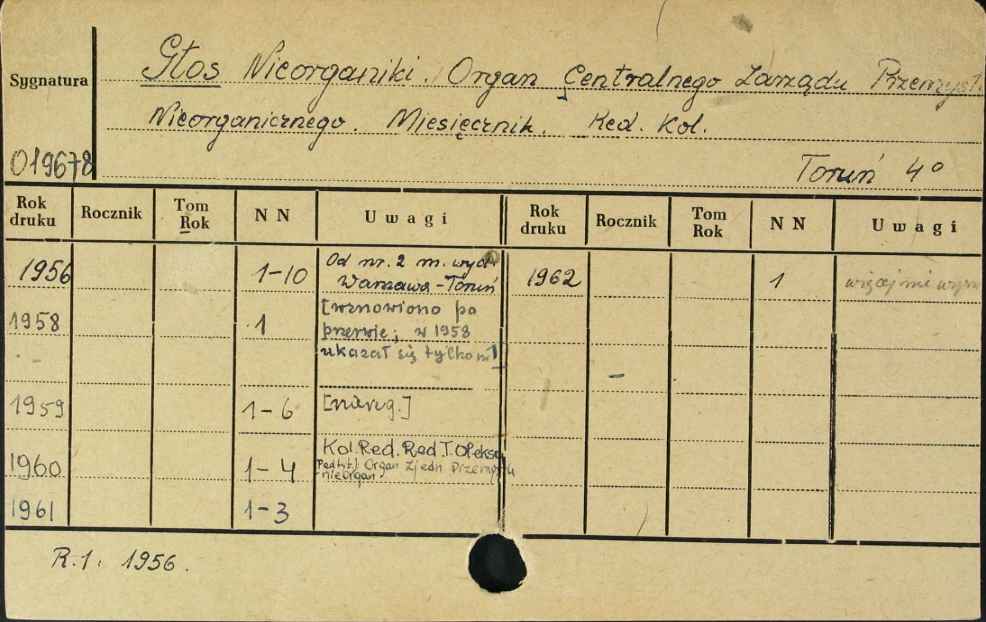 Sygnatura
Głos Nieorganiki. Organ Centralnego Zarządu Przemysł.
Nieorganicznego. Miesięcznik. Red. Kol.
019678
Toruń 4°
Rok druku Rocznik Tom Rok NN Uwagi Rok druku Rocznik Tom Rok NN Uwagi
1956 1-10 Od nr. 2 m. wyd. 1962 1 więcej nie
Warszawa-Toruń
1958 1 [wznowiono po
przerwie; w 1958
ukazał się tylko nr 1]
1959 1-6 [niereg.]
1960 1-4 Kol. Red. Red T. Oleksy
Podtyt: Organ Zjedn. Przemysłu
nieorgan
1961 1-3
R.1: 1956.